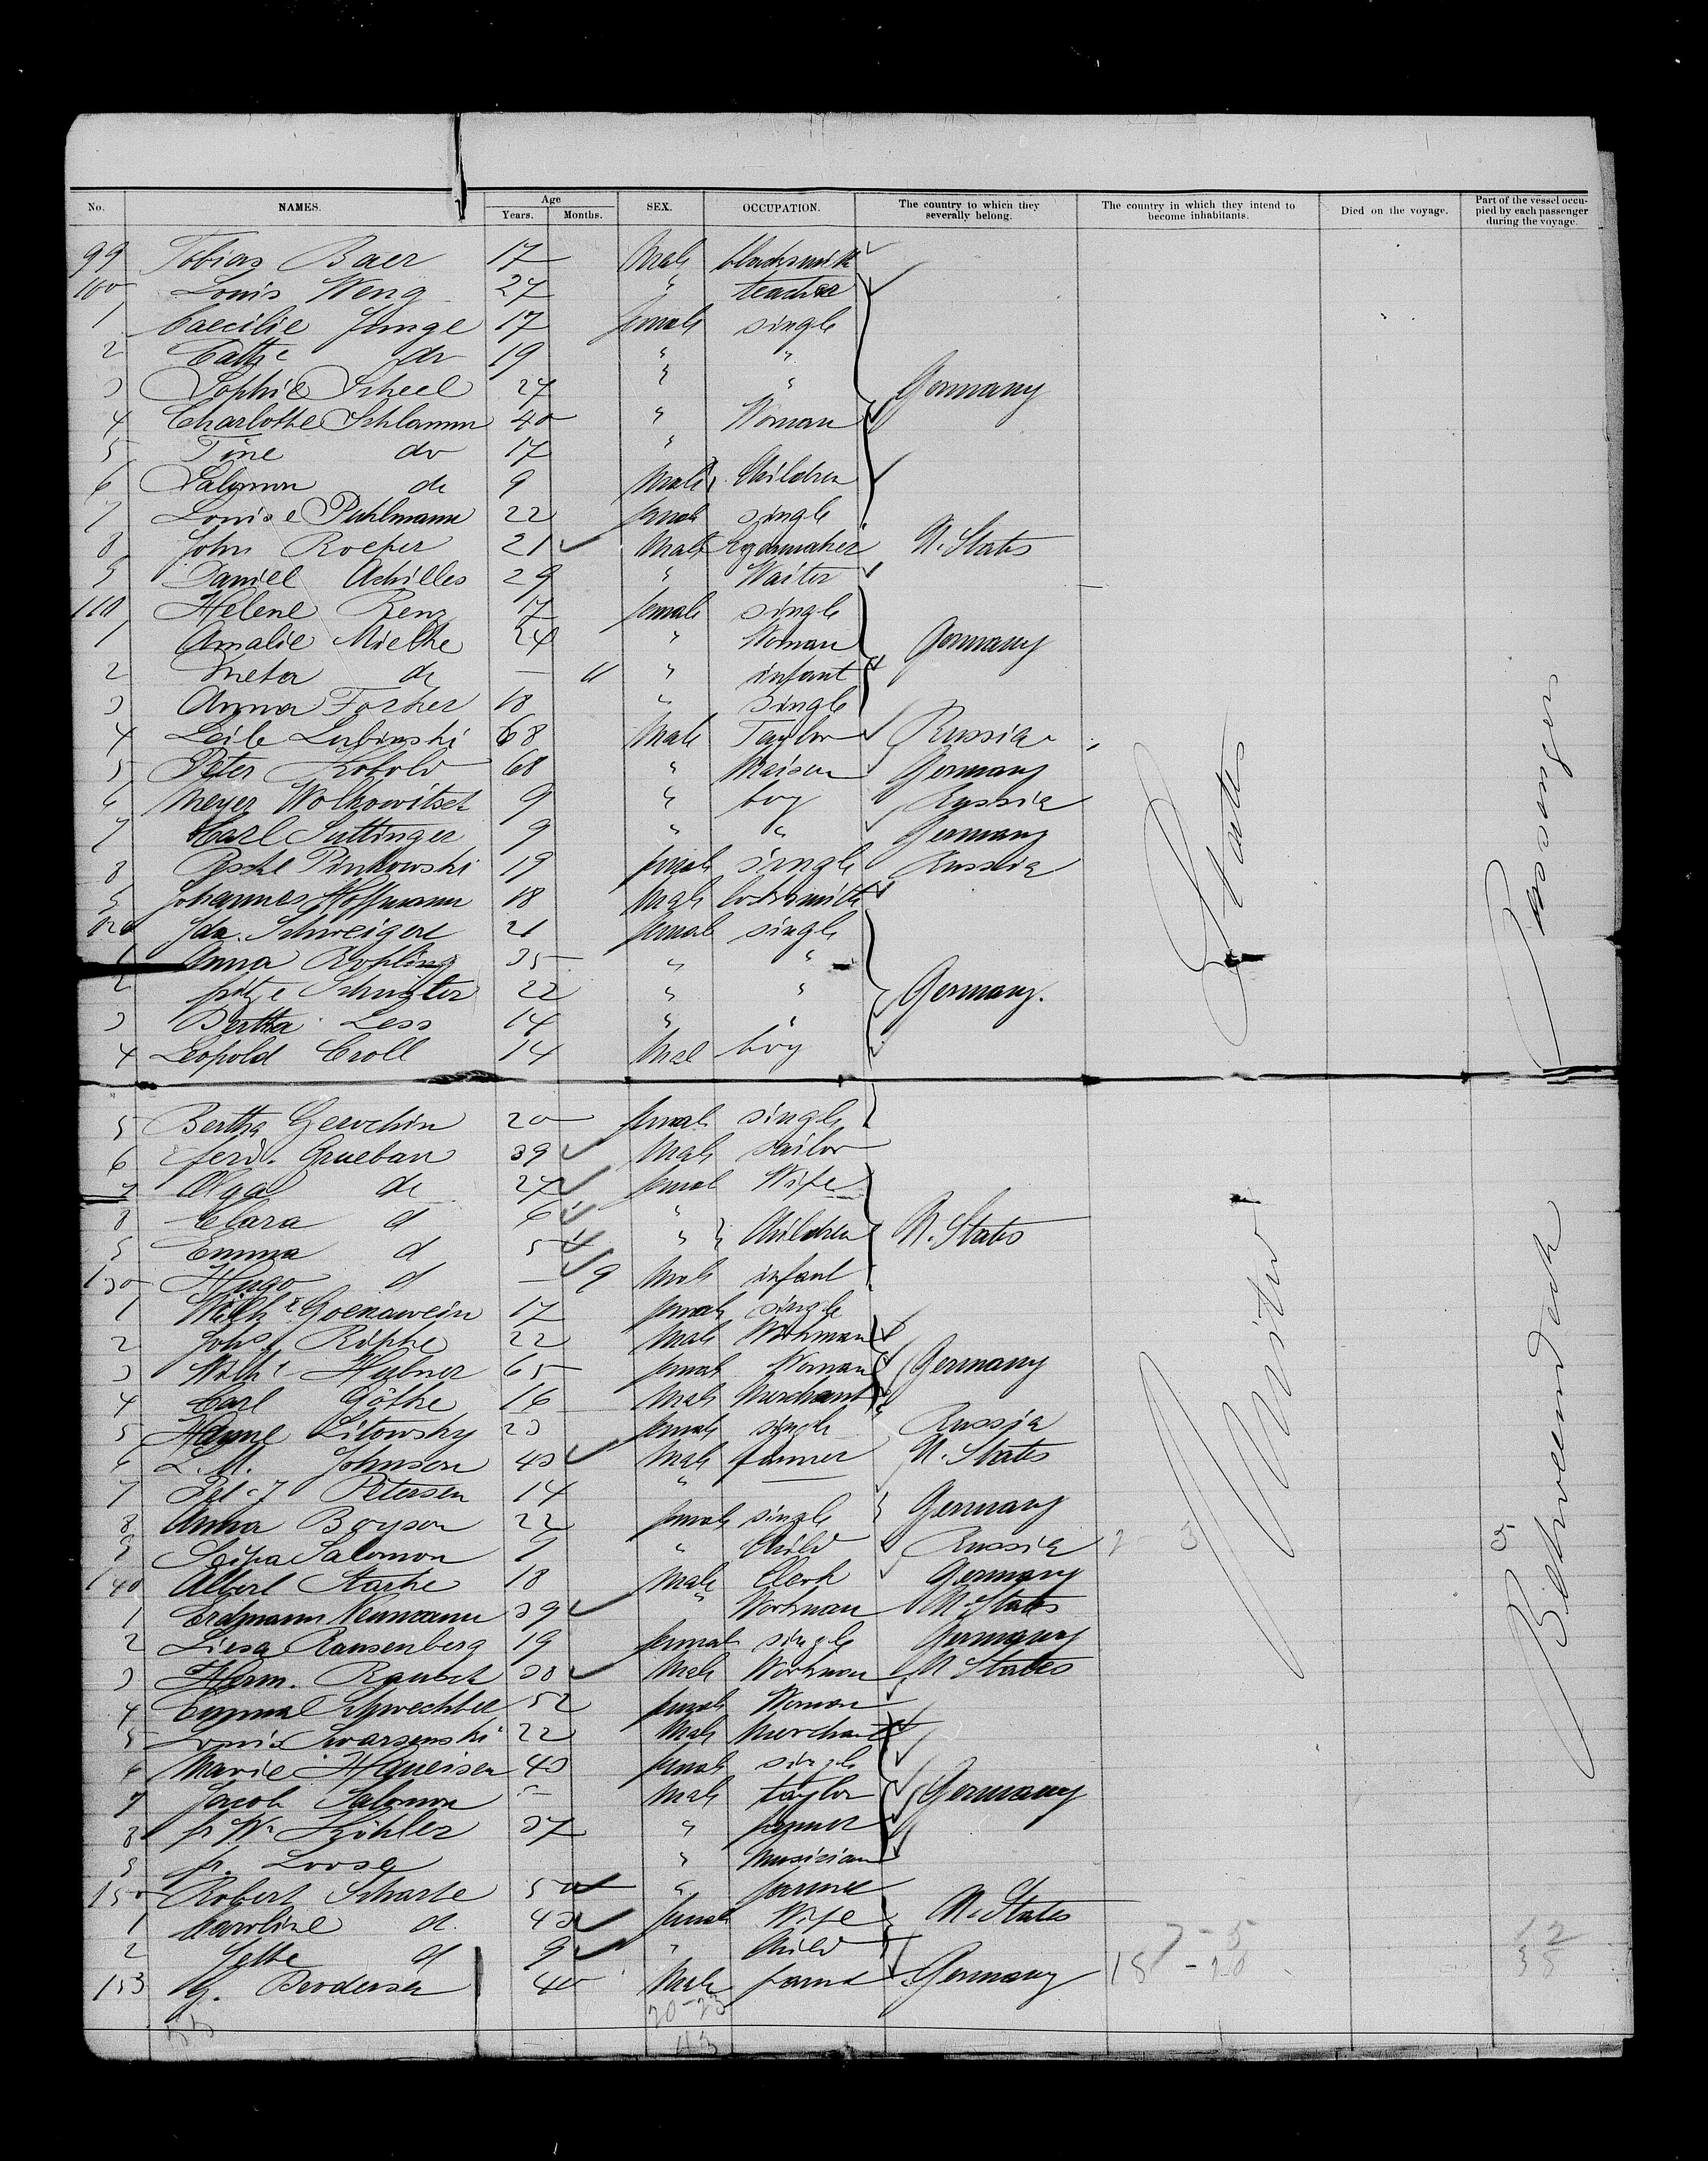 No. NAMES. Age Years. Months. SEX. OCCUPATION. The country to which they severally belong. The country in which they intend to become inhabitants. Died on the voyage. Part of the vessel occupied by each passenger during the voyage.
99 Tobias Baer 17 Male blacksmith
100 Louis Weng 27 " teacher
1 Caecilie Junge 17 female single
2 Cathe do 19 " "
3 Sophie Scheel 27 " " Germany
4 Charlotte Schlamm 40 " Woman
5 Tine do 17 "
6 Salomon do 9 Male Children
7 Louise Puhlmann 22 female single
8 John Roeper 21 Male U. States
9 Daniel Achilles 29 " Waiter
110 Helene Renz 17 female single
1 Amalie Mielke 24 " Woman Germany
2 Meta do — 11 " infant
3 Anna Forker 18 " single
4 Leib Lubinski 68 Male Taylor Russia
5 Peter Kobold 68 " Germany
6 Meyer Wolkowitsch 9 " boy Russia
7 Carl Suttinger 9 " " Germany
8 Peske Pinkowski 19 female single Russia
9 Johannes Hoffmann 18 Male locksmith
120 Ida Schweigert 21 female single
1 Anna 35 " "
2 22 " " Germany.
3 Bertha Less 14 " "
4 Leopold Croll 14 Male boy
5 Bertha Gerochin 20 female single
6 Ferd. Grueban 39 Male sailor
7 Olga do 27 female Wife
8 Clara d 6 " Children U. States
9 Emma d 5 "
130 Hugo d — 9 Male infant
1 Wilh. 17 female single
2 Johs Ripke 22 Male Workman
3 Wilhe Hubner 65 female Woman Germany
4 Carl Göthe 16 Male Merchant
5 Hanne Litowsky 23 female single Russia
6 L. M. Johnson 43 Male farmer U. States
7 Petersen 14 "
8 Anna Boyson 22 female single Germany
9 Salomon 9 " Child Russia
140 Albert Starke 18 Male Clerk Germany
1 Erdmann Neumann 39 " Workman U. States
2 Liesa Ransenberg 19 female single Germany
3 Herm. Rausch 30 Male Workman U States
4 Emma 52 female Woman
5 Louis Swarsenski 22 Male Merchant
6 Marie Haueisen 43 female single
7 Jacob Salomon Male taylor Germany
8 fr. W. Köhler 37 " farmer
9 fr. Loose " Musician
150 Robert Scharte 50 " farmer
1 Caroline d. 43 female Wife U. States
2 Jette d 9 " Child
153 G. Brodersen 40 Male farmer Germany
United States
Betweendeck Passengers
20-23
43